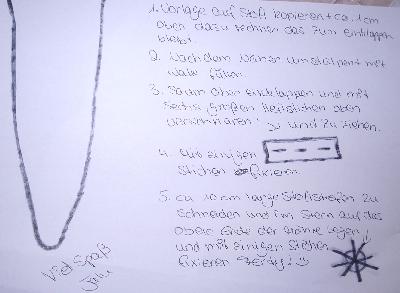 1. Vorlage auf Stoff kopieren + ca. 1cm
oben dazu rechnen das zum einklappen
bleibt.
2. Nach dem Nähen umstülpen + mit
Watte füllen.
3. Saum oben einklappen und mit
sechs großen Heftstichen oben
und zu ziehen.
4. Mit einigen
Stichen fixieren.
5. ca 10cm lange Stoffstreifen zu
schneiden und im Stern auf das
obere Ende der Möhre legen
und mit einigen Stichen
fixieren. Fertig!
Viel Spaß